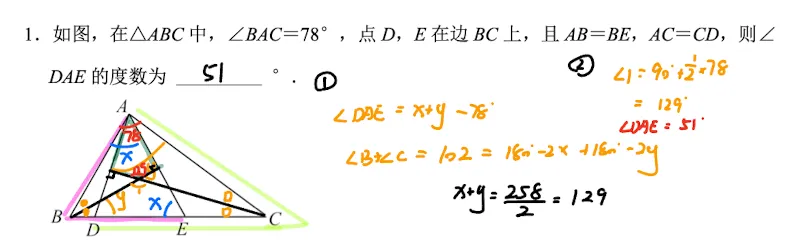 1．如图，在△ABC 中，∠BAC＝78°，点 D，E 在边 BC 上，且 AB＝BE，AC＝CD，则∠
DAE 的度数为 51 °．
①
∠DAE = x+y -78°
∠B+∠C = 102 = 180°-2x +180°-2y
x+y = 258/2 = 129
②
∠1 = 90° + 1/2 × 78
= 129°
∠DAE = 51°
A
78
x
y
x
B
D
E
C